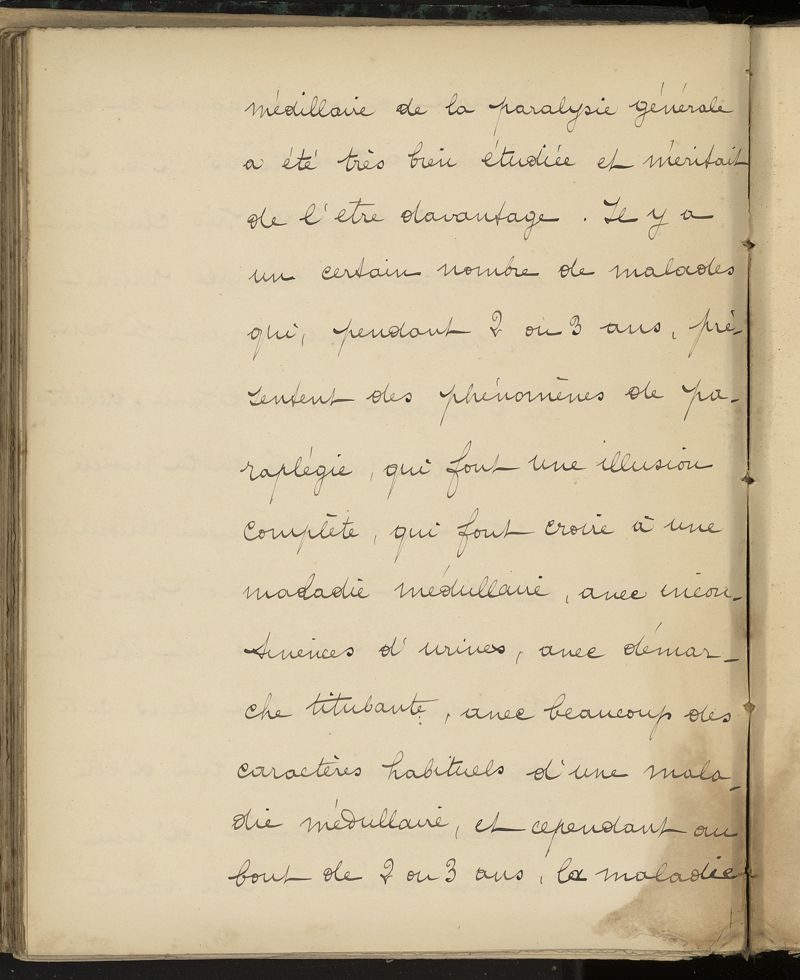 médillaire de la paralysie générale
a été très bien étudiée et méritait
de l'etre davantage. Il y a
un certain nombre de malades
qui, pendant 2 ou 3 ans, pré-
sentent des phénomènes de pa-
raplégie, qui font une illusion
complète, qui font croire à une
maladie médullaire, avec incon-
tinences d'urines, avec démar-
che titubante, avec beaucoup des
caractères habituels d'une mala-
die médullaire, et cependant au
bout de 2 ou 3 ans, la maladie